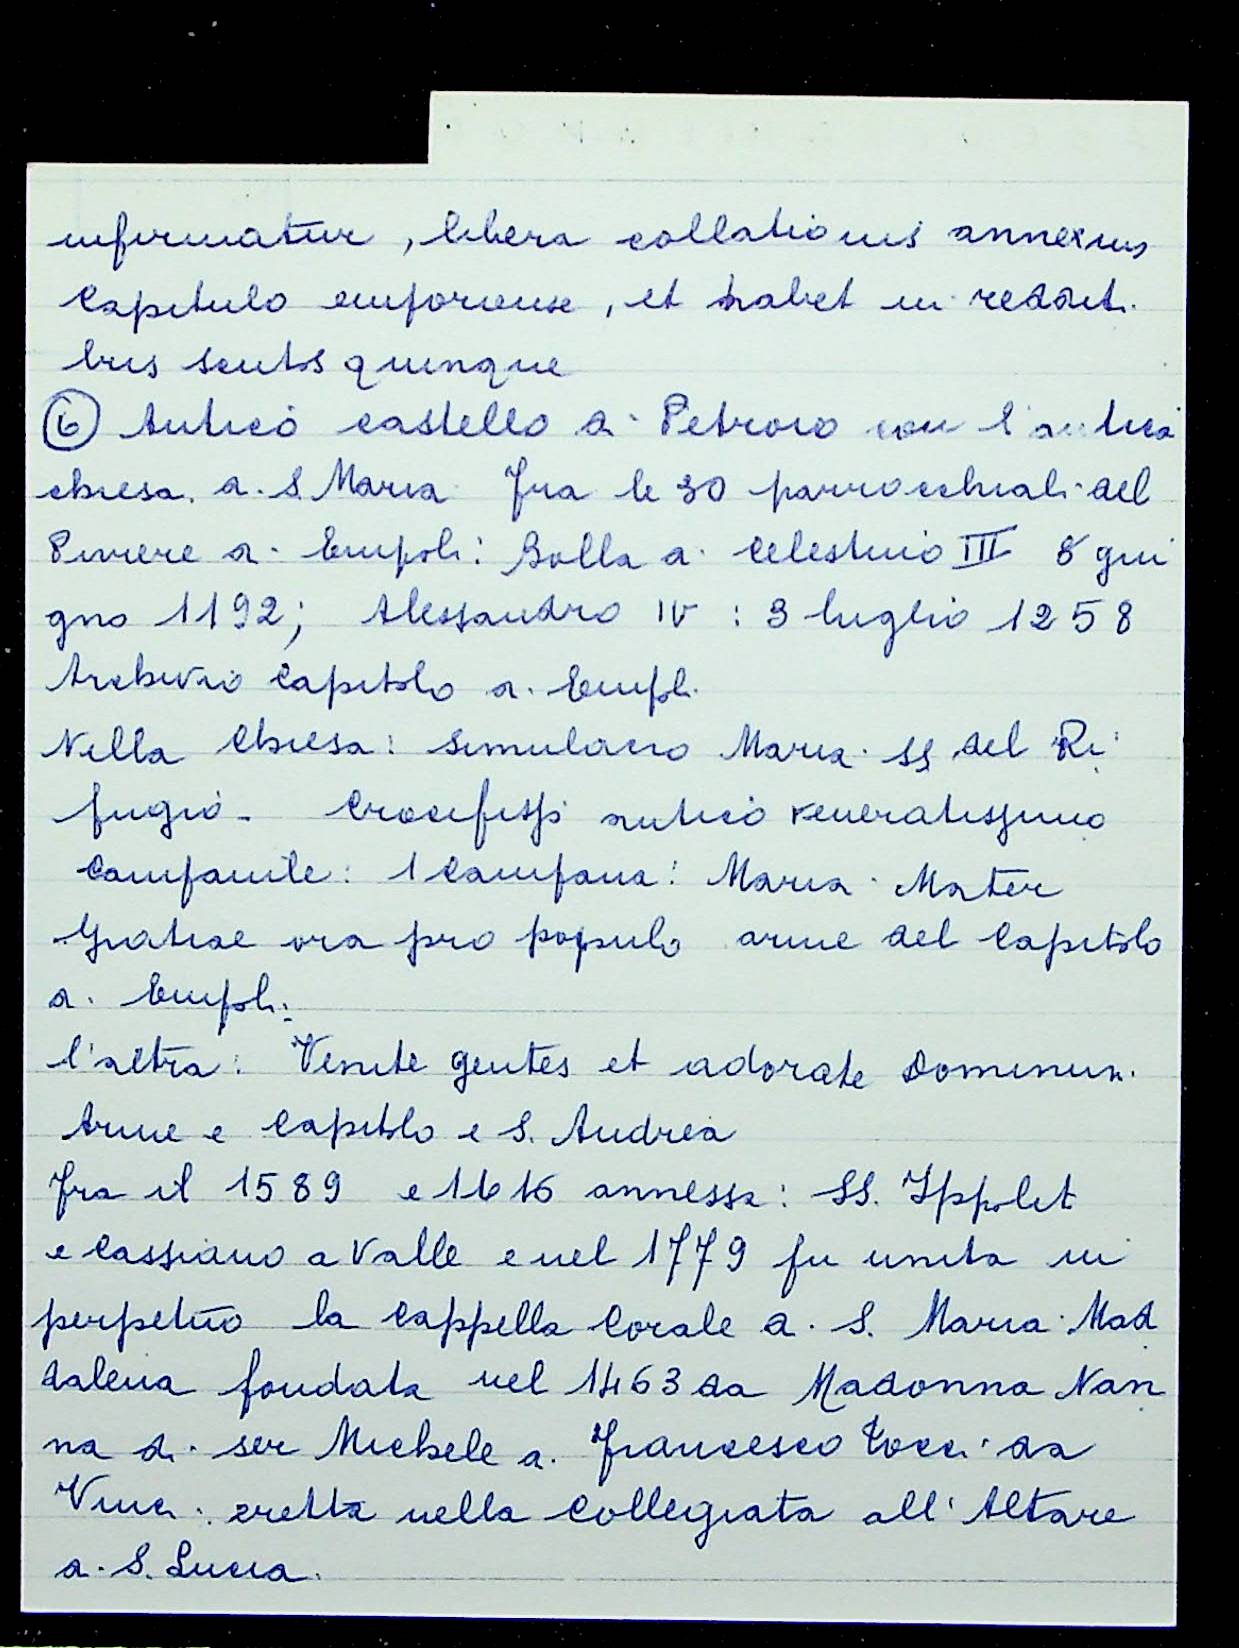 infirmatur, libera collationis annexus
Capitulo emporiense, et habet in reddit.
bus scutos quinque
⑥ Antico castello di Petroio con l'antica
chiesa di S. Maria fra le 30 parrocchiali del
Piviere di Empoli: Bolla di Celestino III 8 giu
gno 1192; Alessandro IV: 3 luglio 1258
Archivio Capitolo di Empoli.
Nella Chiesa: simulacro Maria SS del Ri
fugio - Crocifisso antico veneratissimo
Campanile: 1 Campana: Maria Mater
Gratiae ora pro populo arme del Capitolo
di Empoli:
l'altra: Venite gentes et adorate Dominum.
Arme e Capitolo e S. Andrea
fra il 1589 e 1616 annessa: SS. Ippolit
e Cassiano a Valle e nel 1779 fu unita in
perpetuo la Cappella Corale di S. Maria Mad
dalena fondata nel 1463 da Madonna Nan
na di ser Michele di Francesco Tocci da
Vinci: eretta nella Collegiata all'Altare
di S. Lucia.